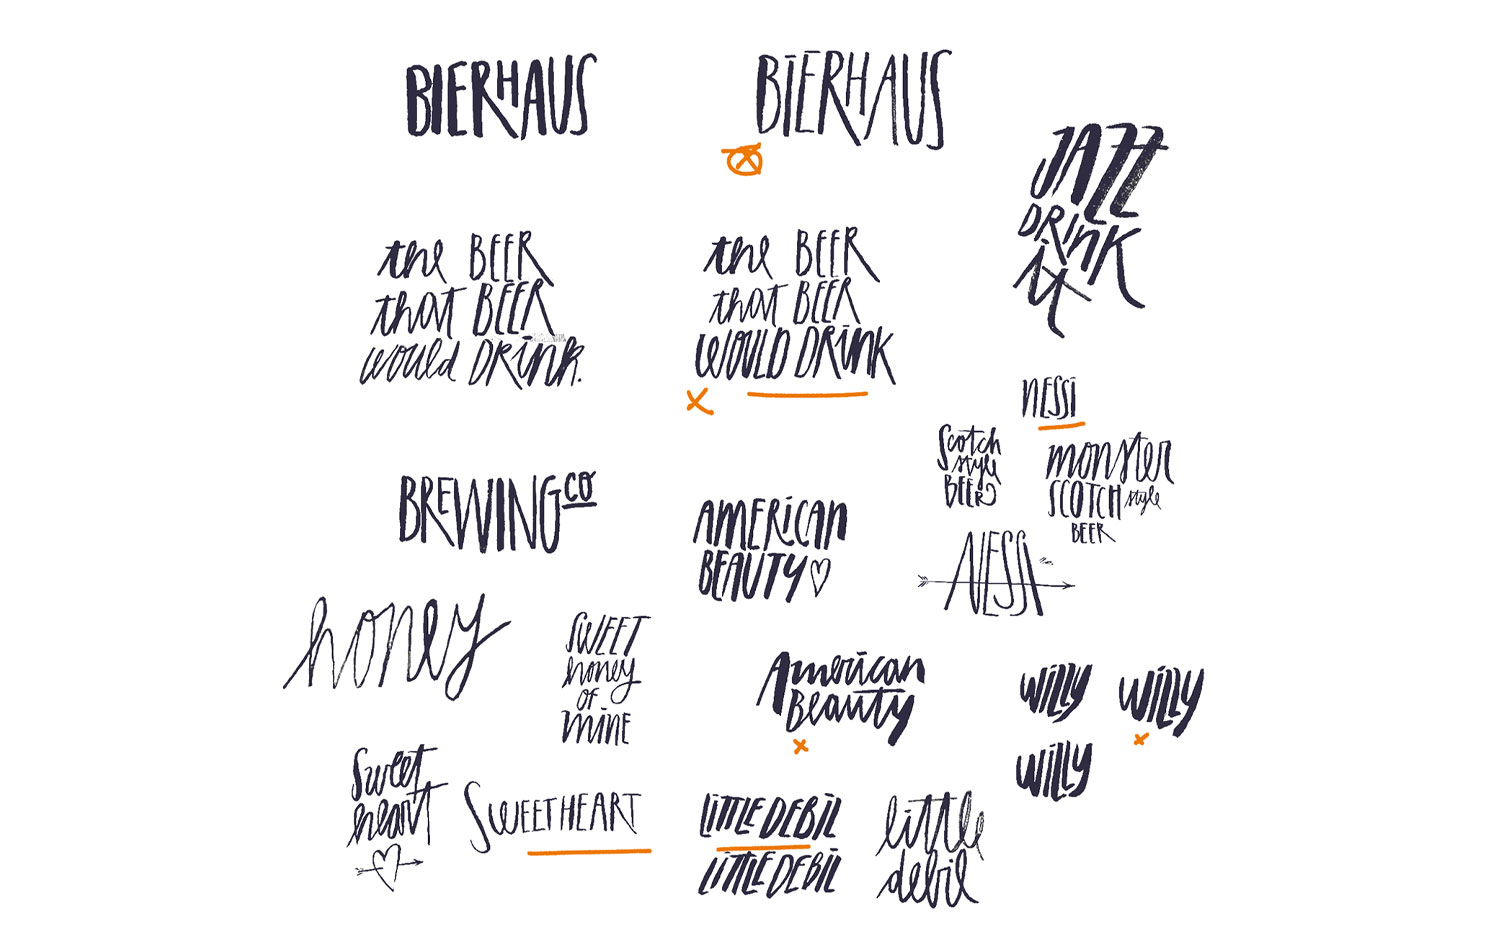 BIERHAUS
BIERHAUS
JAZZ
DRINK
it
the BEER
that BEER
would DRINK.
the BEER
that BEER
WOULD DRINK
NESSI
Scotch
style
BEER
monster
SCOTCH style
BEER
BREWING CO
AMERICAN
BEAUTY
NESSI
honey
SWEET
honey
OF
MINE
American
Beauty
WILLY
WILLY
WILLY
Sweet
heart
SWEETHEART
LITTLE DEBIL
LITTLE DEBIL
little
debil